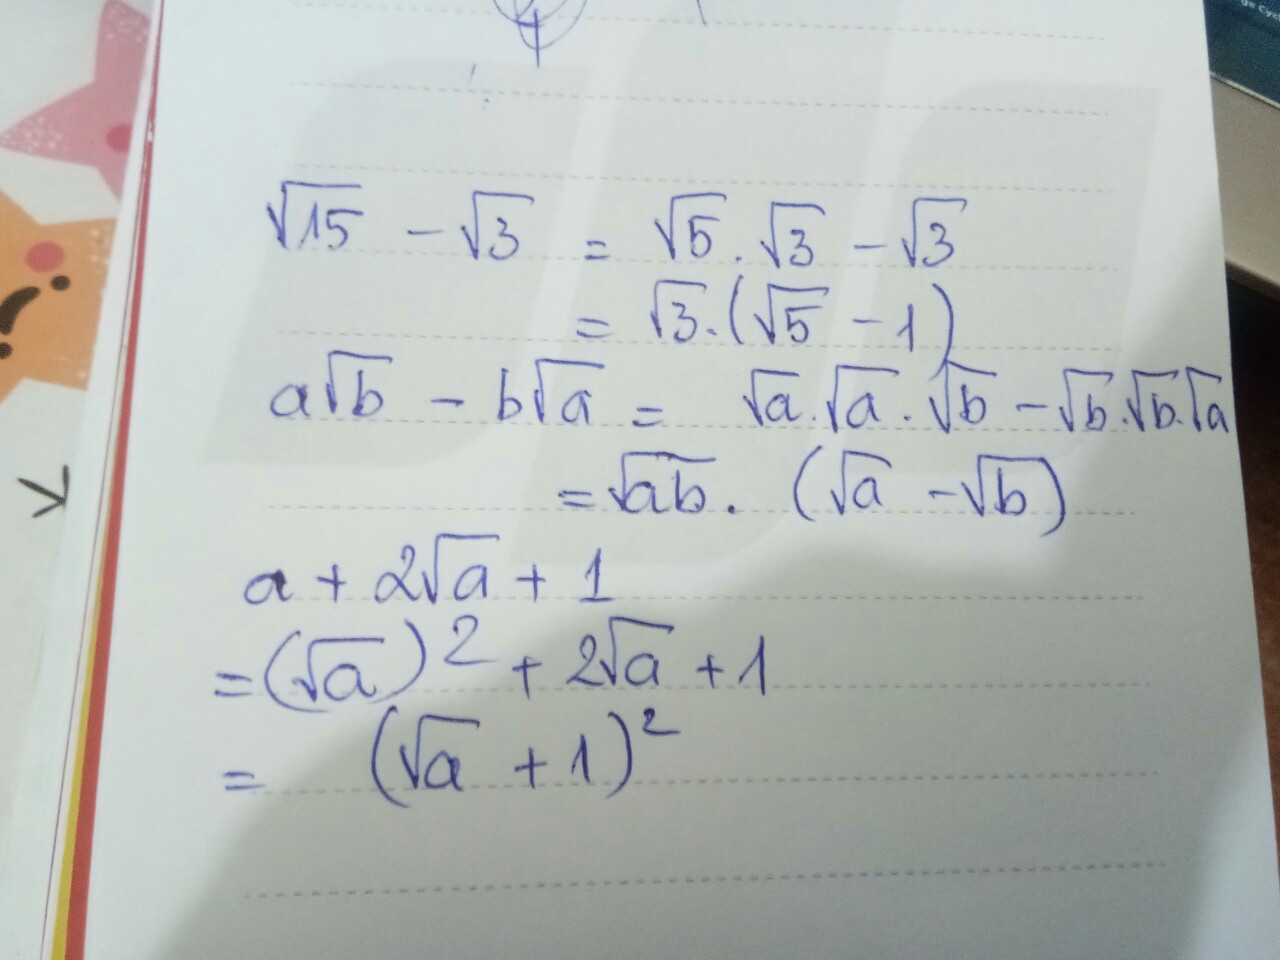 √15 - √3 = √5 . √3 - √3
= √3 . (√5 - 1)
a√b - b√a = √a . √a . √b - √b . √b . √a
= √ab . (√a - √b)
a + 2√a + 1
= (√a)² + 2√a + 1
= (√a + 1)²